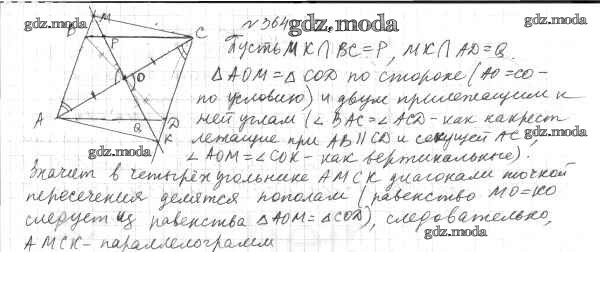 № 364
gdz.moda
gdz.moda
gdz.moda
M
B
P
C
O
A
Q
D
K
gdz.moda
Пусть MK∩BC=P, MK∩AD=Q.
△AOM=△COD по стороне (AO=CO-
по условию) и двум прилежащим к
ней углам (∠BAC=∠ACD-как накрест
лежащие при AB∥CD и секущей AC,
∠AOM=∠COK-как вертикальное).
Значит в четырёхугольнике AMCK диагонали точкой
пересечения делятся пополам (равенство MO=KO
следует из равенства △AOM=△COD), следовательно,
AMCK-параллелограмм
gdz.moda